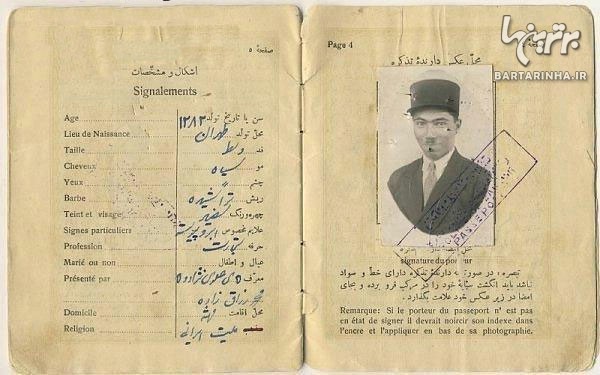 صفحهٔ ۵
اشکال و مشخّصات
Signalements
Age ۱۲۸۲ سن یا تاریخ تولد
Lieu de Naissance طهران محل تولد
Taille وسط قد
Cheveux سیاه مو
Yeux چشم
Barbe تراشیده ریش
Teint et visage چهره ورنگ
Signes particuliers ابرو پیوسته علایم مخصوص
Profession تجارت حرفه
Marié ou non عیال و اطفال
Présenté par معرّف
رزاق زاده
Domicile محل اقامت
Religion ملیت ایرانی مذهب
Page 4
محل عکس دارندهٔ تذکره
برترینها
BARTARINHA.IR
PASSEPORT
signature du porteur
تبصره، در صورتیکه دارندهٔ تذکره دارای خط و سواد
نباشد باید انگشت سبّابه خود را در مرکب فرو برده و بجای
امضا در زیر عکس خود علامت بگذارد.
Remarque: Si le porteur du passeport n' est pas
en état de signer il devrait noircir son indexe dans
l'encre et l'appliquer en bas de sa photographie.